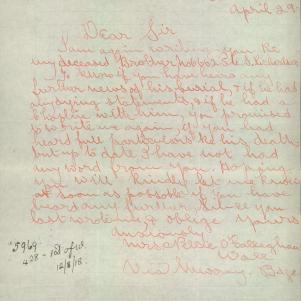 April 29
Dear Sir
I am again writing you Re
my deceased Brother No 6602
to know if you have heard any
further news of his burial, & if he had
any dying statements, & if he had a
with him, you promised
to write me again, if you had
heard full particulars Re his death
but up to date I have not had
any word from you. Hoping
you will kindly let me know
as soon as possible if you have
heard any further since you
last wrote me & oblige yours
anxiously
Mrs
Via
5969
428
12/8/18